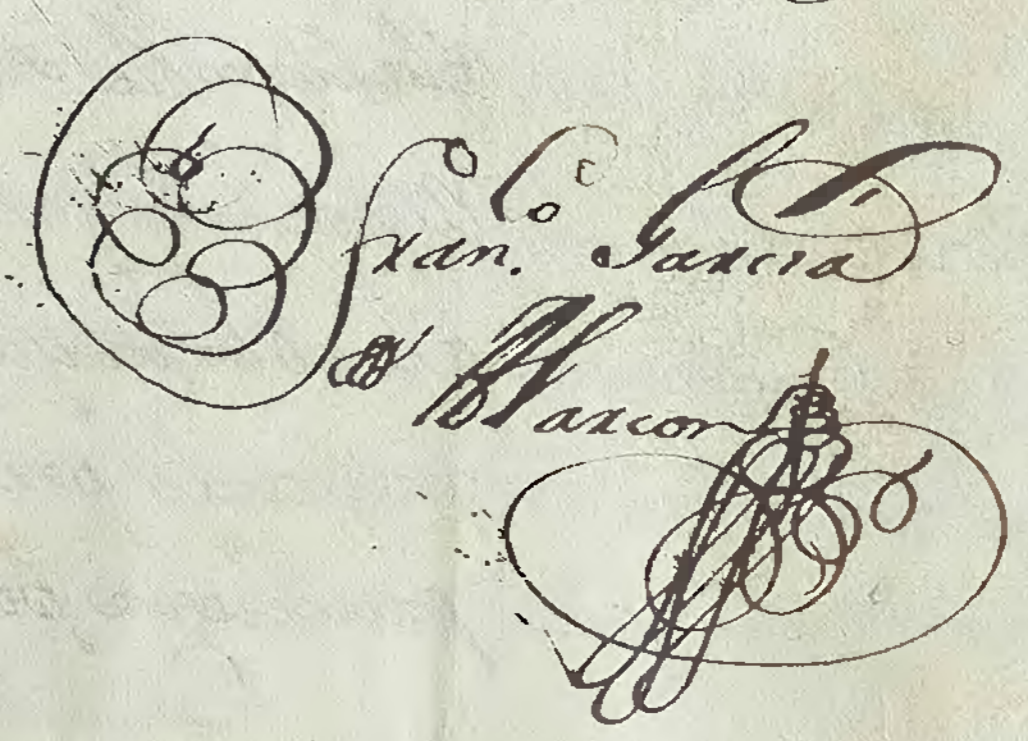 Fran.co Garcia
Alarcon